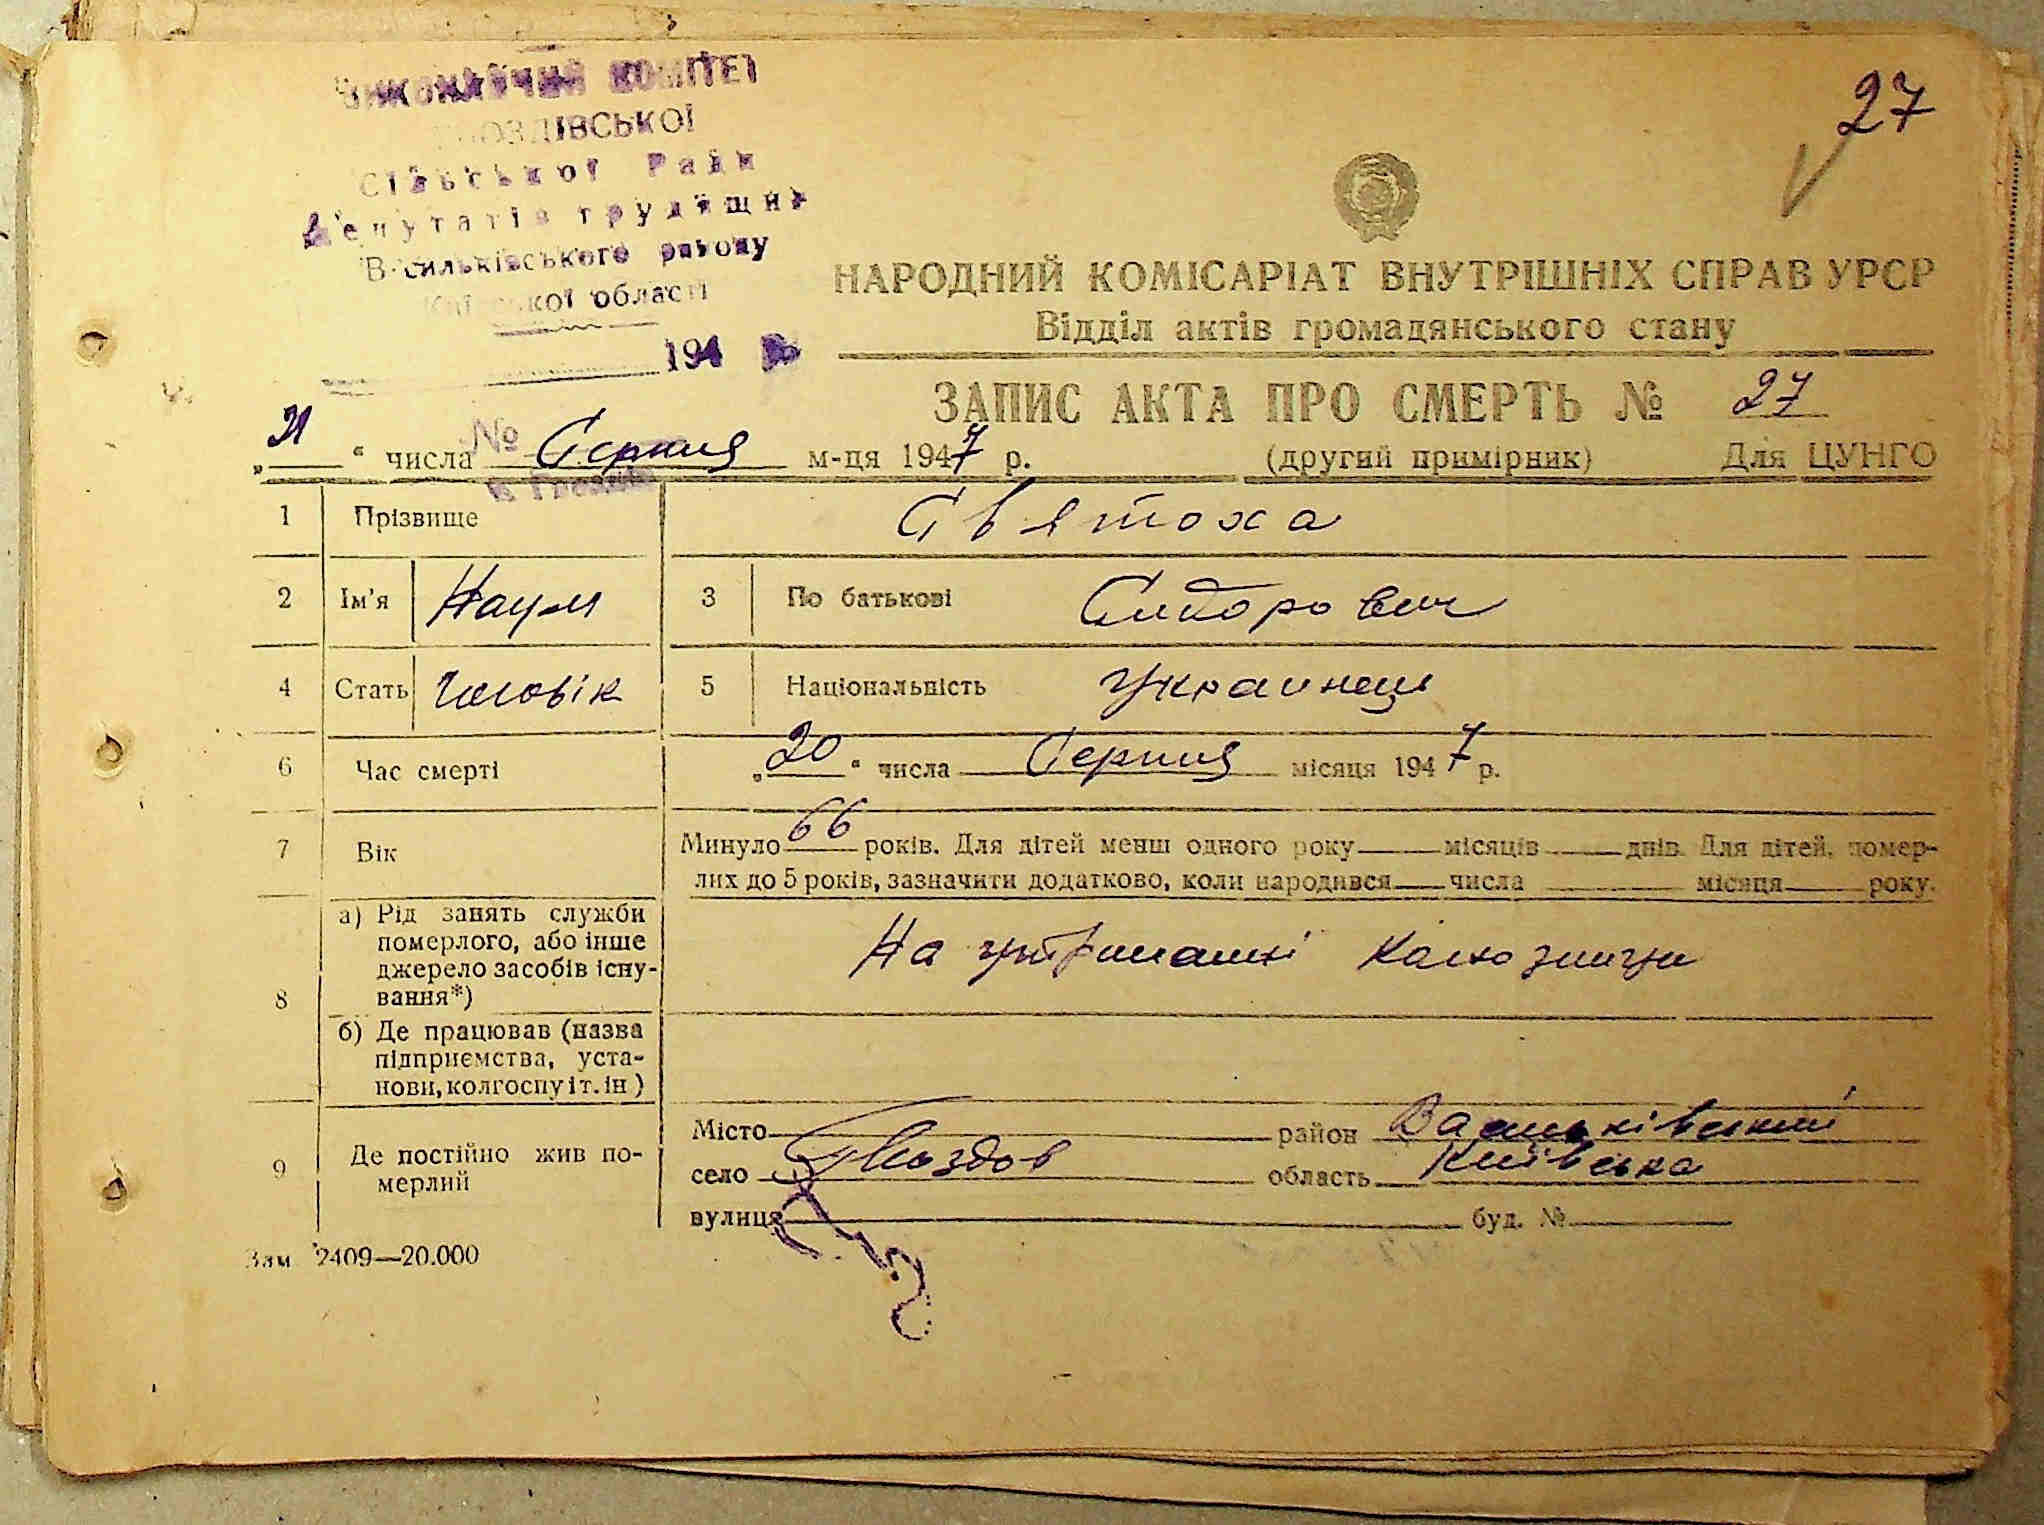 ВИКОНАВЧИЙ КОМІТЕТ
ГВОЗДІВСЬКОЇ
Сільської Ради
депутатів трудящих
Васильківського району
Київської області
194
27
НАРОДНИЙ КОМІСАРІАТ ВНУТРІШНІХ СПРАВ УРСР
Відділ актів громадянського стану
ЗАПИС АКТА ПРО СМЕРТЬ № 27
„21“ числа Серпня м-ця 1947 р. (другий примірник) Для ЦУНГО
№
1 Прізвище Святоха
2 Ім'я Наум 3 По батькові Сидорович
4 Стать Чоловік 5 Національність Украинець
6 Час смерті „20“ числа Серпня місяця 1947 р.
7 Вік Минуло 66 років. Для дітей менш одного року місяців днів. Для дітей, помер-
лих до 5 років, зазначити додатково, коли народився числа місяця року.
8 а) Рід занять служби
померлого, або інше
джерело засобів існу-
вання*)
На утриманні Колхозници
б) Де працював (назва
підприємства, уста-
нови, колгоспу і т. ін)
9 Де постійно жив по-
мерлий
Місто район Васильківський
село Гвоздов область Київська
вулиця буд. №
Зам 2409—20.000